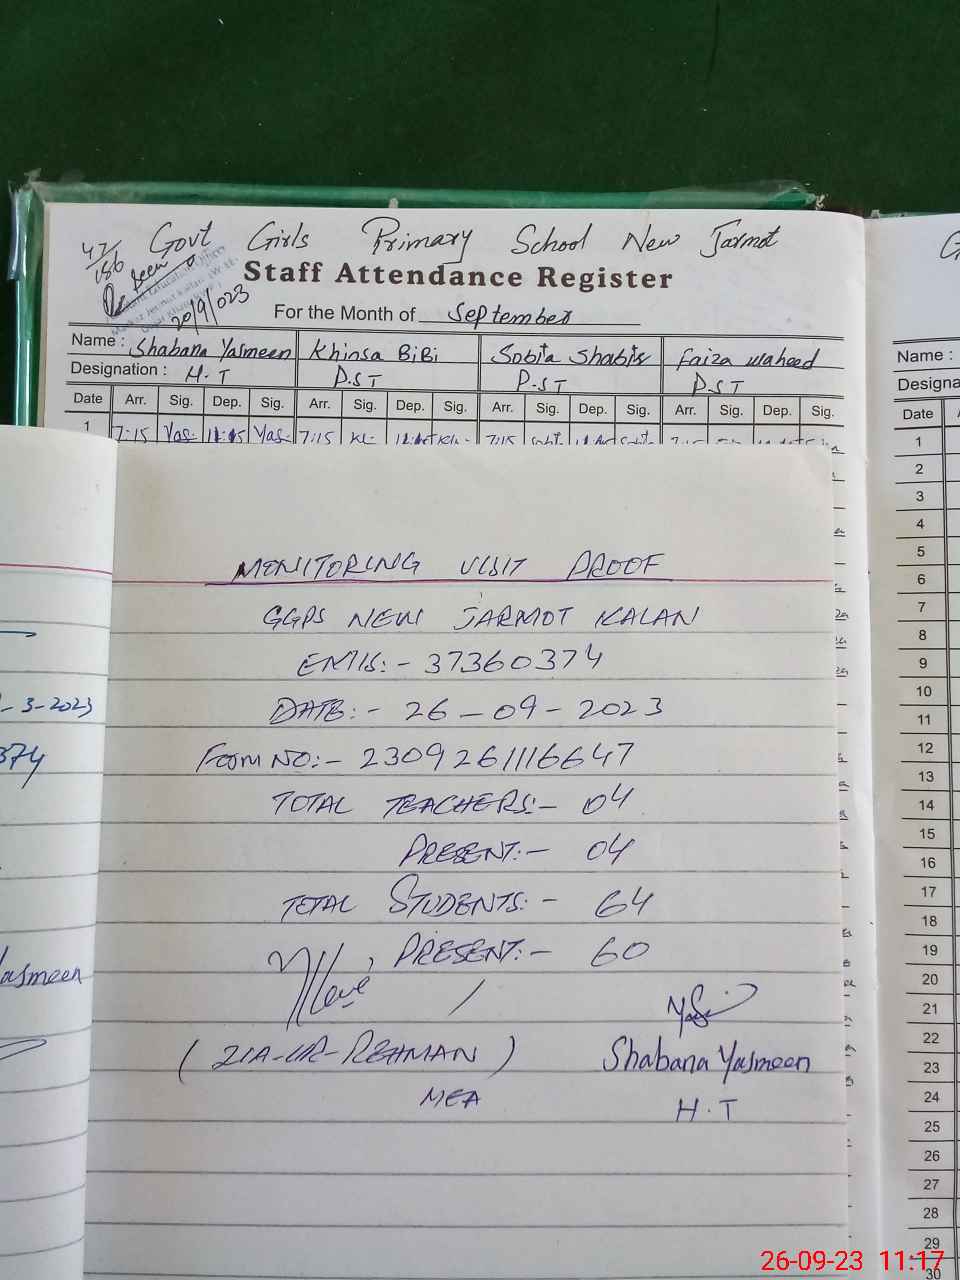 Govt Girls Primary School New Jarmot
47/186
Seen
20/9/023
Staff Attendance Register
For the Month of September
Name : Shabana Yasmeen Khinsa BiBi Sobita Shabir Faiza Waheed
Designation : H.T P.S.T P.S.T P.S.T
Date Arr. Sig. Dep. Sig. Arr. Sig. Dep. Sig. Arr. Sig. Dep. Sig. Arr. Sig. Dep. Sig.
1 7:15 Yas. 11:45 Yas. 7:15 7:15
MENITORING VISIT PROOF
GGPS NEW JARMOT KALAN
EMIS:- 37360374
DATE:- 26-09-2023
Form NO:- 2309261116647
TOTAL TEACHERS:- 04
PRESENT:- 04
TOTAL STUDENTS:- 64
PRESENT:- 60
(ZIA-UR-REHMAN)
MEA
Shabana Yasmeen
H.T
-3-2023
374
Yasmeen
G
Name :
Designa
Date A
1
2
3
4
5
6
7
8
9
10
11
12
13
14
15
16
17
18
19
20
21
22
23
24
25
26
27
28
29
30
26-09-23 11:17